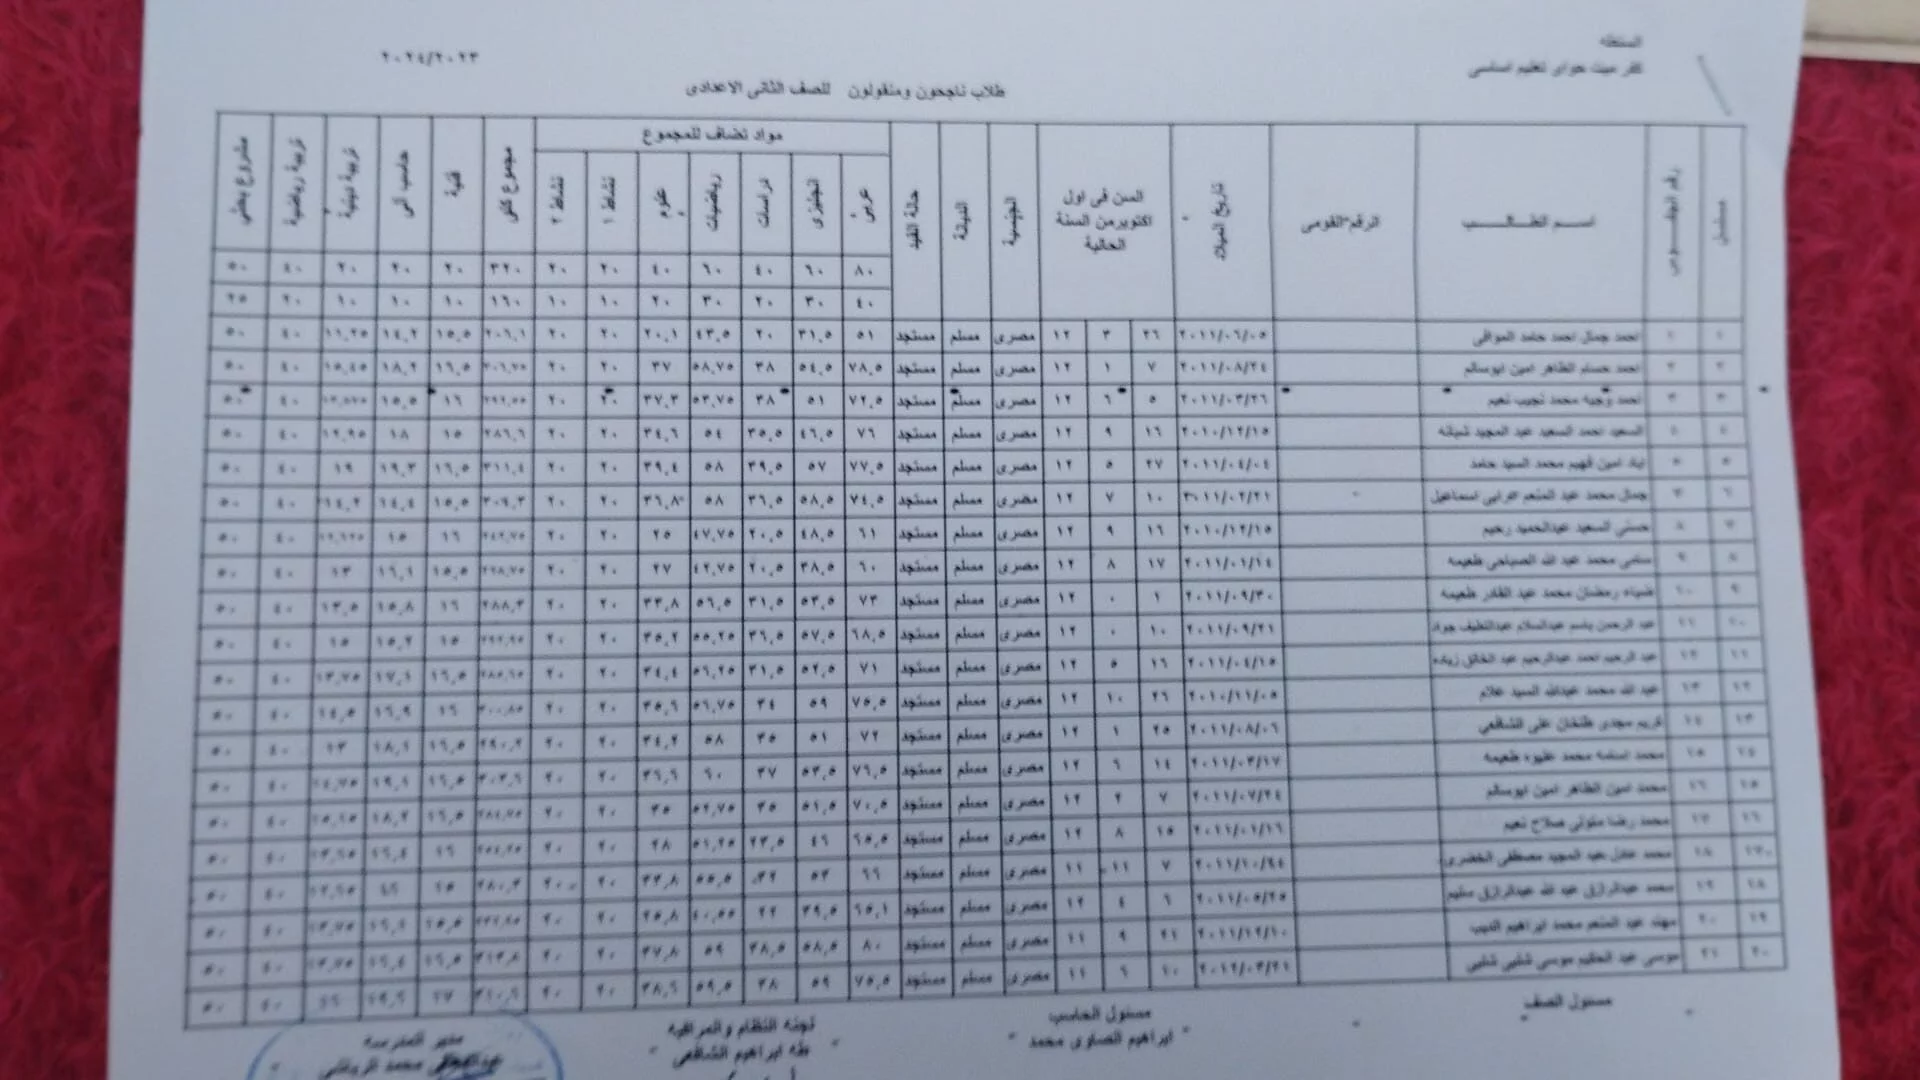 السنطه
كفر ميت حواى تعليم اساسى
٢٠٢٤/٢٠٢٣
طلاب ناجحون ومنقولون للصف الثانى الاعدادى
مسلسل رقم الجلوس اسم الطالب الرقم القومى تاريخ الميلاد السن فى اول اكتوبر من السنة الحالية الجنسية الديانة حالة القيد مواد تضاف للمجموع مجموع كلى فنية حاسب الى تربية دينية تربية رياضية مشروع بحثى
عربى انجليزى دراسات رياضيات علوم نشاط ١ نشاط ٢
٨٠ ٦٠ ٤٠ ٦٠ ٤٠ ٢٠ ٢٠ ٣٢٠ ٢٠ ٢٠ ٢٠ ٤٠ ٥٠
٤٠ ٣٠ ٢٠ ٣٠ ٢٠ ١٠ ١٠ ١٦٠ ١٠ ١٠ ١٠ ٢٠ ٢٥
١ احمد جمال احمد حامد الموافى ٢٠١١/٠٦/٠٥ ٢٦ ٣ ١٢ مصرى مسلم مستجد ٥١ ٣١,٥ ٢٠ ٤٣,٥ ٢٠,١ ٢٠ ٢٠ ٢٠٦,١ ١٥,٥ ١٤,٢ ١١,٢٥ ٤٠ ٥٠
٢ احمد حسام الظاهر امين ابوسالم ٢٠١١/٠٨/٢٤ ٧ ١ ١٢ مصرى مسلم مستجد ٧٨,٥ ٥٤,٥ ٣٨ ٥٨,٧٥ ٣٧ ٢٠ ٢٠ ٣٠٦,٧٥ ١٦,٥ ١٨,٢ ١٥,٤٥ ٤٠ ٥٠
٣ احمد وجيه محمد نجيب نعيم ٢٠١١/٠٣/٢٦ ٥ ٦ ١٢ مصرى مسلم مستجد ٧٢,٥ ٥١ ٣٨ ٥٣,٧٥ ٣٧,٣ ٢٠ ٢٠ ٢٩٢,٥٥ ١٦ ١٥,٥ ٤٠ ٥٠
السعيد احمد السعيد عبد المجيد شبانه ٢٠١٠/١٢/١٥ ١٦ ٩ ١٢ مصرى مسلم مستجد ٧٦ ٤٦,٥ ٣٥,٥ ٥٤ ٣٤,٦ ٢٠ ٢٠ ٢٨٦,٦ ١٥ ١٨ ١٢,٩٥ ٤٠ ٥٠
اياد امين فهيم محمد السيد حامد ٢٠١١/٠٤/٠٤ ٢٧ ٥ ١٢ مصرى مسلم مستجد ٧٧,٥ ٥٧ ٣٩,٥ ٥٨ ٣٩,٤ ٢٠ ٢٠ ٣١١,٤ ١٦,٥ ١٩,٣ ١٩ ٤٠ ٥٠
٦ جمال محمد عبد المنعم عرابى اسماعيل ٢٠١١/٠٢/٢١ ١٠ ٧ ١٢ مصرى مسلم مستجد ٧٤,٥ ٥٨,٥ ٣٦,٥ ٥٨ ٣٦,٨ ٢٠ ٢٠ ١٥,٥ ١٤,٤ ٤٠ ٥٠
٧ ٨ حسنى السعيد عبدالحميد رحيم ٢٠١٠/١٢/١٥ ١٦ ٩ ١٢ مصرى مسلم مستجد ٦١ ٤٨,٥ ٢٠,٥ ٤٧,٧٥ ٢٥ ٢٠ ٢٠ ٢٤٢,٧٥ ١٦ ١٥ ٤٠ ٥٠
٨ ٩ سامى محمد عبد الله الصباحى طعيمه ٢٠١١/٠١/١٤ ١٧ ٨ ١٢ مصرى مسلم مستجد ٦٠ ٣٨,٥ ٢٠,٥ ٤٢,٧٥ ٢٧ ٢٠ ٢٠ ٢٢٨,٧٥ ١٥,٥ ١٦,١ ١٣ ٤٠ ٥٠
٩ ١٠ ضياء رمضان محمد عبد القادر طعيمه ٢٠١١/٠٩/٣٠ ١ ٠ ١٢ مصرى مسلم مستجد ٧٣ ٥٣,٥ ٣١,٥ ٥٦,٥ ٣٣,٨ ٢٠ ٢٠ ٢٨٨,٣ ١٦ ١٥,٨ ١٣,٥ ٤٠ ٥٠
١٠ ١١ عبد الرحمن باسم عبدالسلام عبداللطيف جواد ٢٠١١/٠٩/٢١ ١٠ ٠ ١٢ مصرى مسلم مستجد ٦٨,٥ ٥٧,٥ ٣٦,٥ ٥٥,٢٥ ٣٥,٢ ٢٠ ٢٠ ٢٩٢,٩٥ ١٥ ١٥,٢ ١٥ ٤٠ ٥٠
١١ ١٢ عبد الرحيم احمد عبدالرحيم عبد الخالق زياده ٢٠١١/٠٤/١٥ ١٦ ٥ ١٢ مصرى مسلم مستجد ٧١ ٥٢,٥ ٣١,٥ ٥٦,٢٥ ٣٤,٤ ٢٠ ٢٠ ٢٨٥,٦٥ ١٦,٥ ١٧,١ ١٣,٧٥ ٤٠ ٥٠
١٢ ١٣ عبد الله محمد عبدالله السيد علام ٢٠١٠/١١/٠٥ ٢٦ ١٠ ١٢ مصرى مسلم مستجد ٧٥,٥ ٥٩ ٣٤ ٥٦,٧٥ ٣٥,٦ ٢٠ ٢٠ ٣٠٠,٨٥ ١٦ ١٦,٩ ١٤,٥ ٤٠ ٥٠
١٣ ١٤ كريم مجدى طلخان على الشافعي ٢٠١١/٠٨/٠٦ ٢٥ ١ ١٢ مصرى مسلم مستجد ٧٢ ٥١ ٣٥ ٥٨ ٣٤,٢ ٢٠ ٢٠ ٢٩٠,٢ ١٦,٥ ١٨,١ ١٣ ٤٠ ٥٠
١٤ ١٥ محمد اسامه محمد عليوه طعيمه ٢٠١١/٠٣/١٧ ١٤ ٦ ١٢ مصرى مسلم مستجد ٧٦,٥ ٥٣,٥ ٣٧ ٦٠ ٣٦,٦ ٢٠ ٢٠ ٣٠٣,٦ ١٦,٥ ١٩,١ ١٤,٧٥ ٤٠ ٥٠
١٥ ١٦ محمد امين الظاهر امين ابوسالم ٢٠١١/٠٧/٢٤ ٧ ٢ ١٢ مصرى مسلم مستجد ٧٠,٥ ٥١,٥ ٣٥ ٥٢,٧٥ ٣٥ ٢٠ ٢٠ ٢٨٤,٧٥ ١٦,٥ ١٨,٢ ٤٠ ٥٠
١٦ ١٧ محمد رضا متولى صلاح نعيم ٢٠١١/٠١/١٦ ١٥ ٨ ١٢ مصرى مسلم مستجد ٦٥,٥ ٤٦ ٢٣,٥ ٥١,٢٥ ٢٨ ٢٠ ٢٠ ٢٥٤,٢٥ ١٦ ١٦,٤ ٤٠ ٥٠
١٨ محمد عادل عبد المجيد مصطفى الخضرى ٧ ١١ ١١ مصرى مسلم مستجد ٦٦ ٥٢ ٥٥,٥ ٢٠ ٢٠ ٢٨٠,٣ ١٥ ٤٠ ٥٠
١٨ ١٩ محمد عبدالرازق عبد الله عبدالرازق سليم ٢٠١١/٠٥/٢٥ ٦ ٤ ١٢ مصرى مسلم مستجد ٦٥,١ ٣٩,٥ ٢٢ ٤٠,٥٥ ٢٥,٨ ٢٠ ٢٠ ١٥,٥ ١٦,٤ ١٣,٧٥ ٤٠ ٥٠
١٩ ٢٠ مهند عبد المنعم محمد ابراهيم الديب ٢٠١١/١٢/١٠ ٢١ ٩ ١١ مصرى مسلم مستجد ٨٠ ٥٨,٥ ٣٨,٥ ٥٩ ٣٧,٨ ٢٠ ٢٠ ٣١٣,٨ ١٦,٥ ١٦,٤ ١٣,٧٥ ٤٠ ٥٠
٢٠ ٢١ موسى عبد الحليم موسى شلبى شلبى ٢٠١٢/٠٣/٢١ ١٠ ٦ ١١ مصرى مسلم مستجد ٧٥,٥ ٥٩ ٣٨ ٥٩,٥ ٣٨,٦ ٢٠ ٢٠ ٣١٠,٦ ١٧ ١٩,٦ ١٦ ٤٠ ٥٠
مسئول الصف مسئول الحاسب لجنه النظام والمراقبه مدير المدرسه
" ابراهيم الصاوى محمد " " طه ابراهيم الشافعى " محمد الرياشى